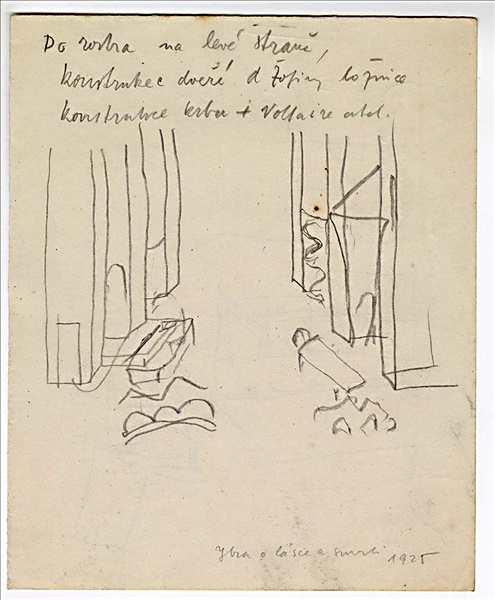 Do rostra na levé straně,
konstrukce dveří d Žofiny ložnice
konstrukce krbu + Voltaire atd.
Hra o lásce a smrti 1925